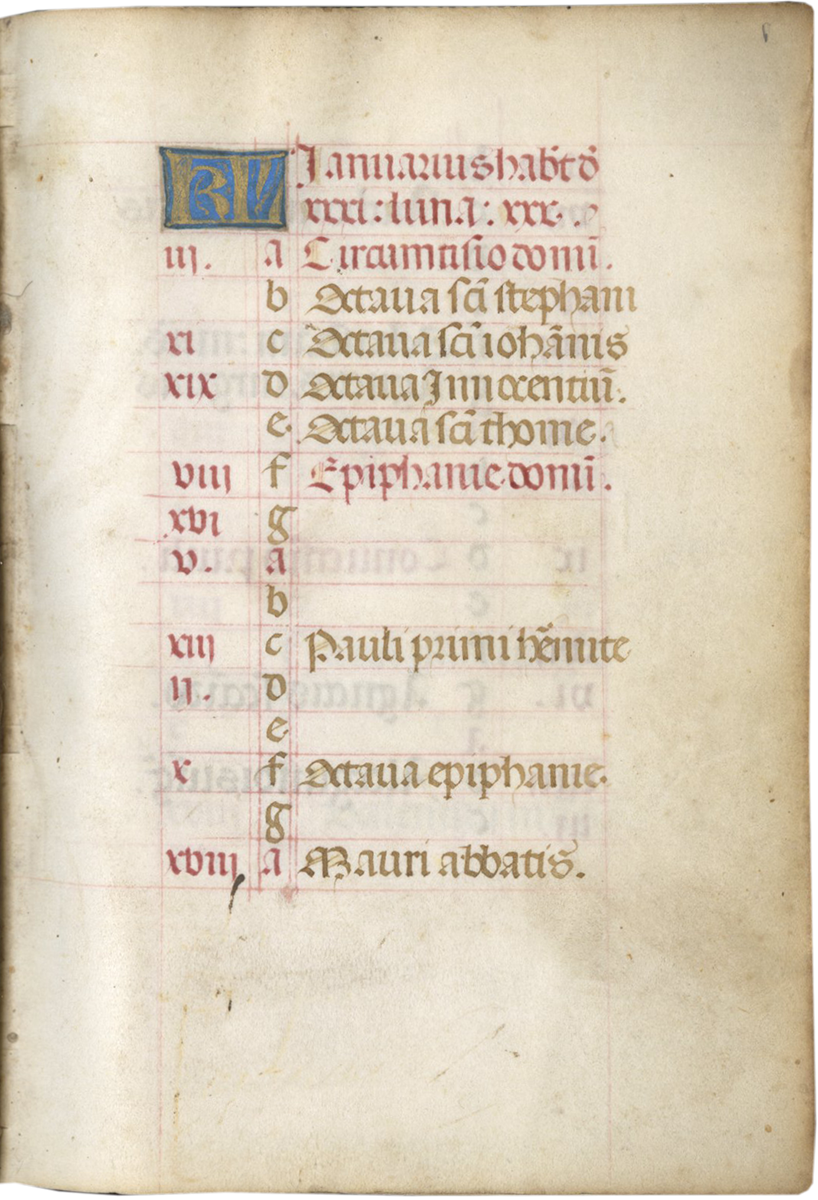 KL Ianuarius habt dō
xxxi : luna : xxx.
iii. a Circumcisio domī.
b Octaua scī stephani
xi c Octaua scī iohānis
xix d Octaua Innocentiū.
e Octaua scī thome.
viii f Epiphanie domī.
xvi g
v. a
b
xiii c Pauli primi hēmite
ii. d
e
x f Octaua epiphanie
g
xviii a Mauri abbatis.